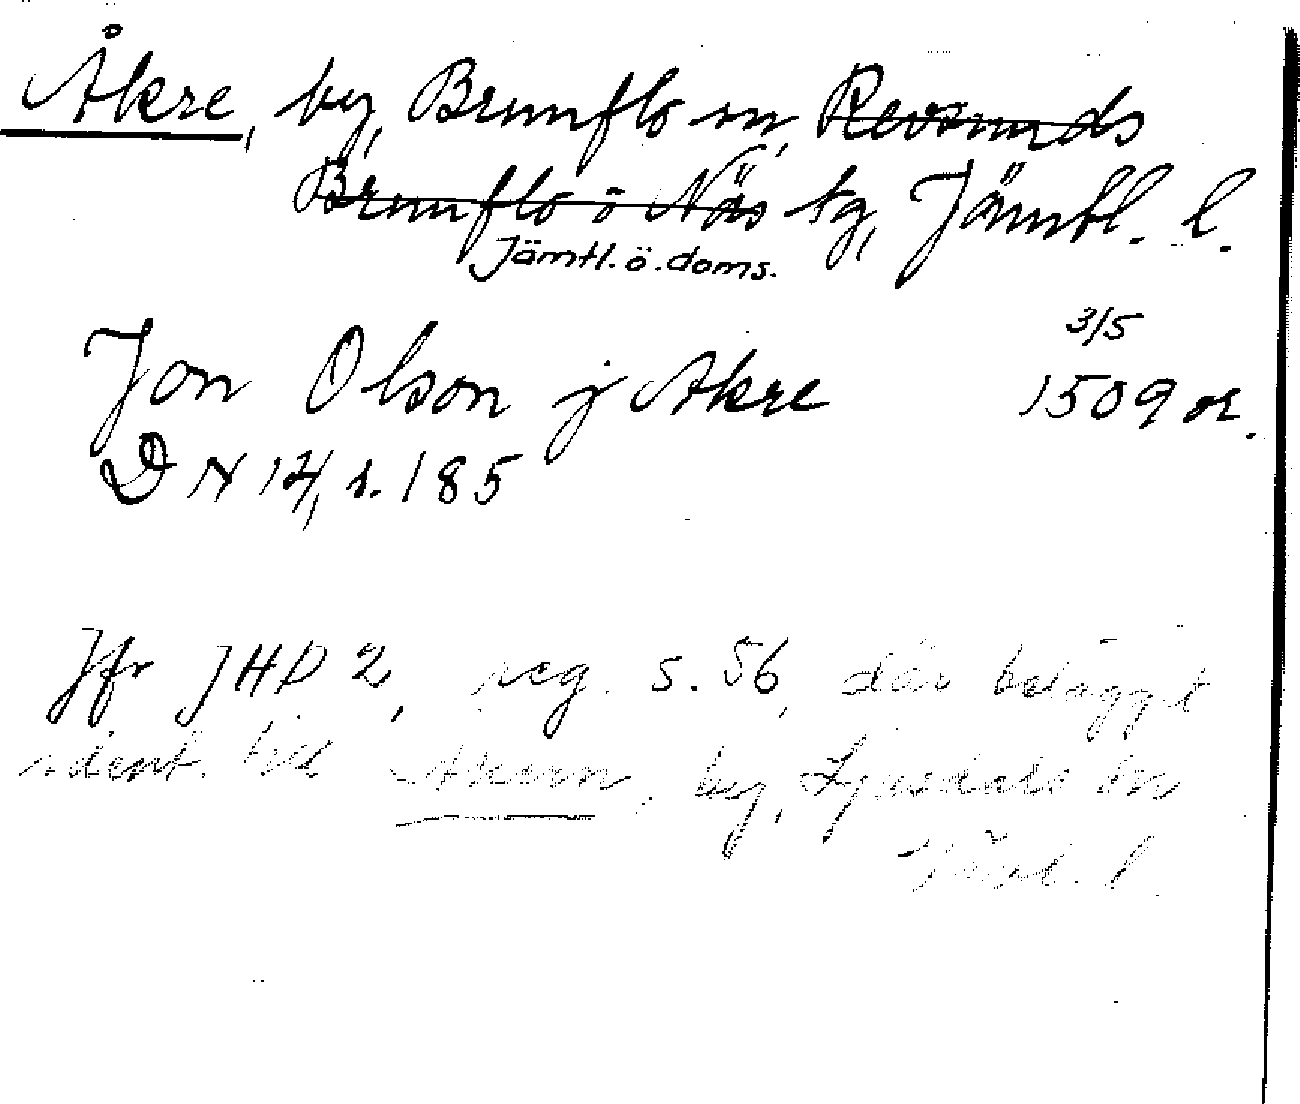 Åkre, by, Brunflo sn, Revsunds
Brunflo o Näs tg, Jämtl. l.
Jämtl. ö. doms.
3/5
Jon Olson j Akre 1509 or.
DN 14, s. 185
Jfr JHD 2, reg. s. 56, där belägget
ident. till Åkern, by, Ljusdals sn
Gävl. l.